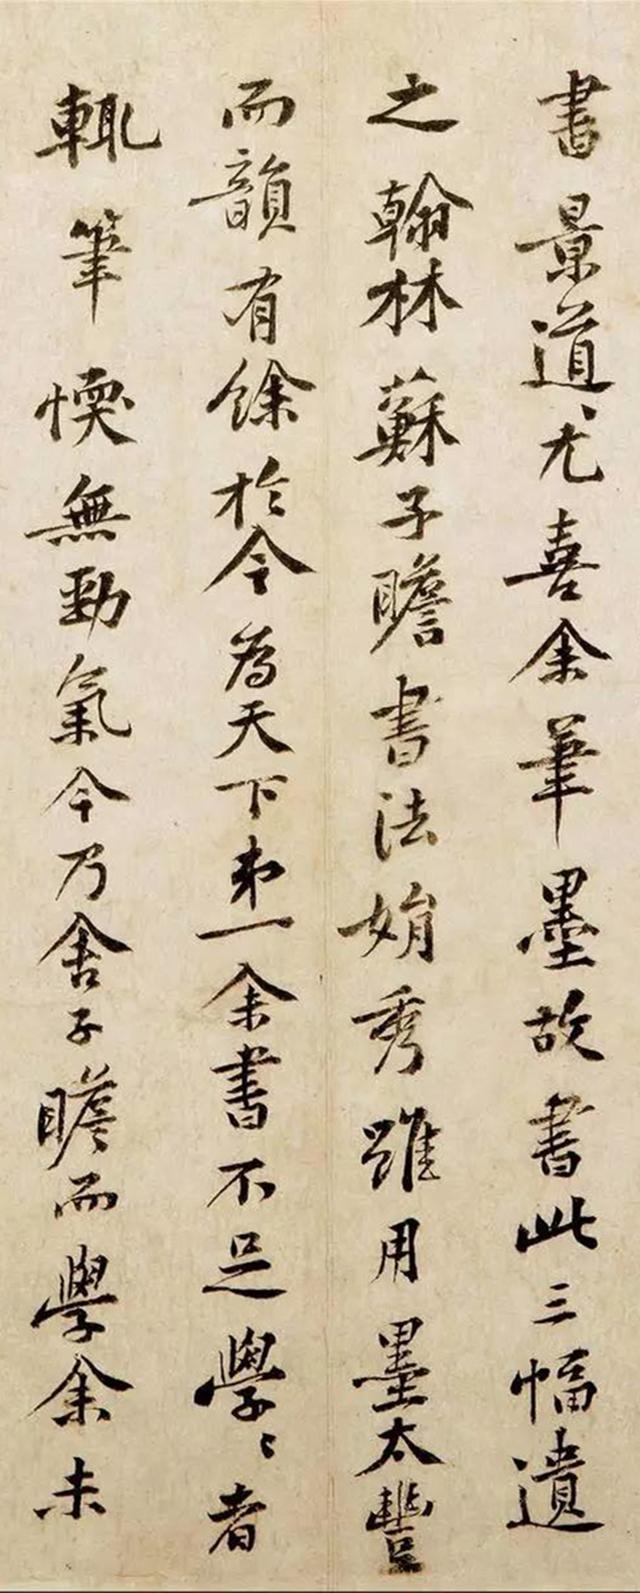 書景道尤喜余筆墨故書此三幅遺
之翰林蘇子瞻書法娟秀雖用墨太豐
而韻有餘於今為天下第一余書不足學學者
輒筆愞無勁氣今乃舍子瞻而學余未